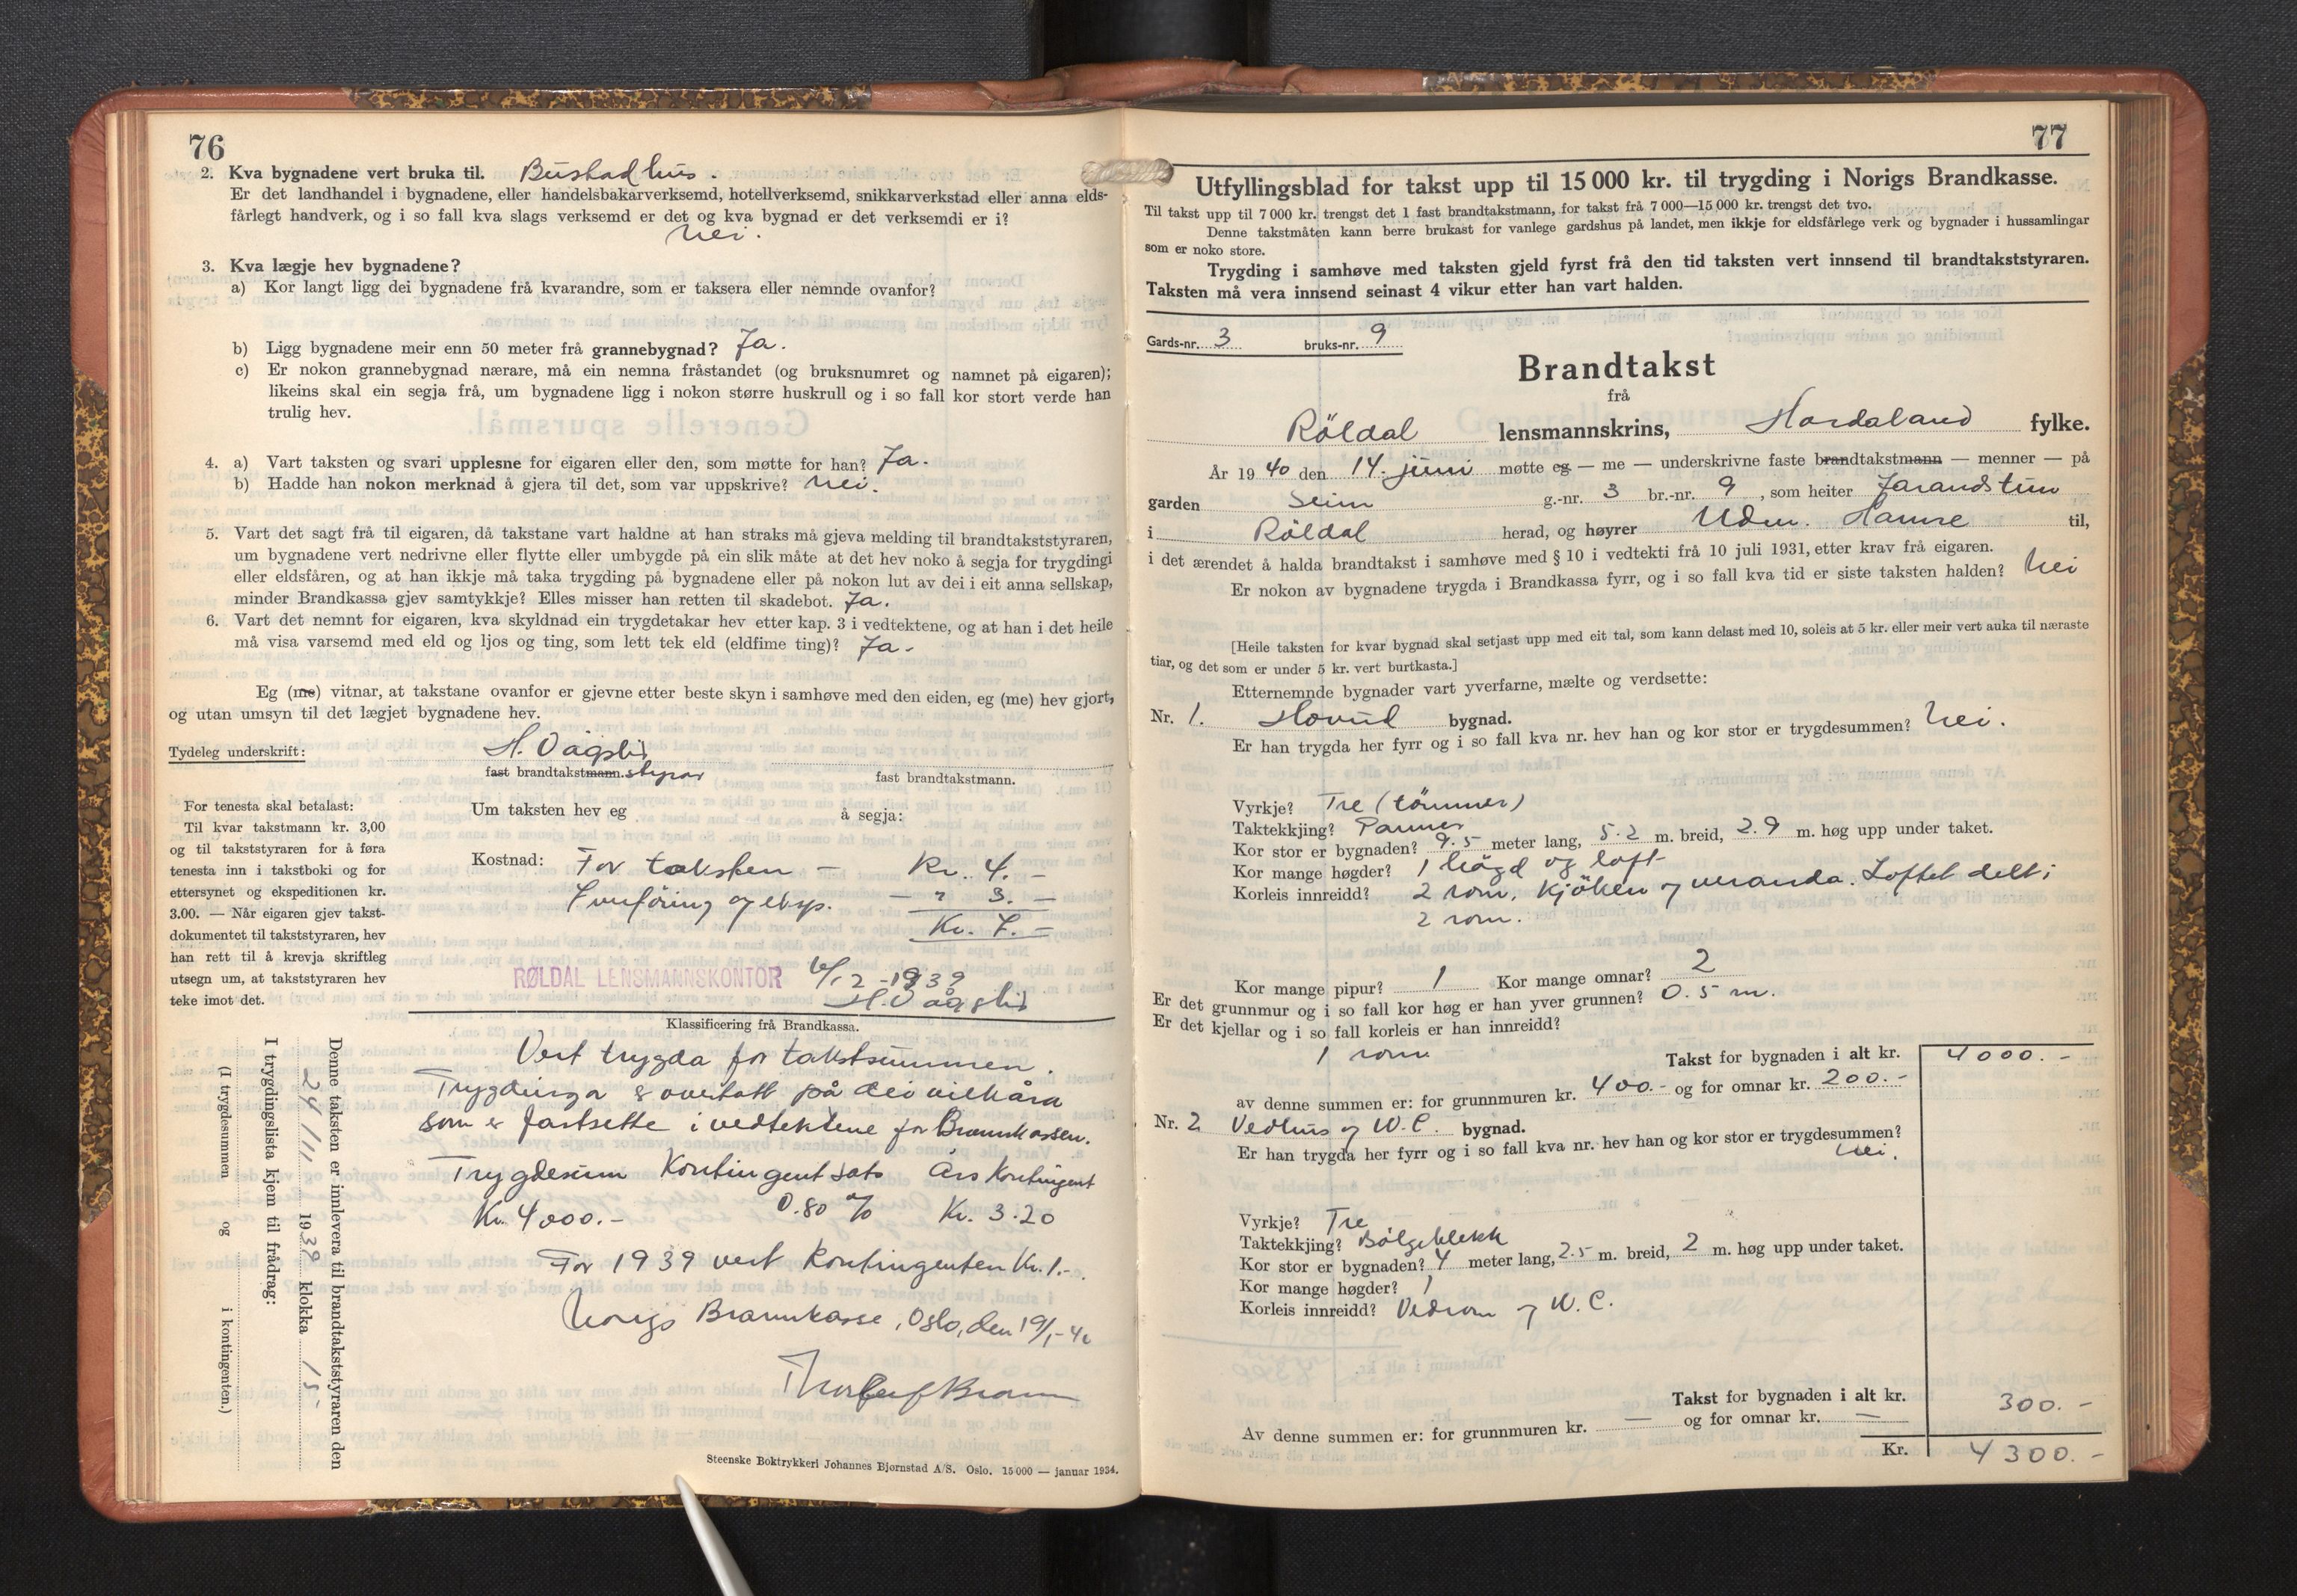 76
2. Kva bygnadene vert bruka til. Bustadhus.
Er det landhandel i bygnadene, eller handelsbakarverksemd, hotellverksemd, snikkarverkstad eller anna elds-
fårlegt handverk, og i so fall kva slags verksemd er det og kva bygnad er det verksemdi er i?
Nei.
3. Kva lægje hev bygnadene?
a) Kor langt ligg dei bygnadene frå kvarandre, som er taksera eller nemnde ovanfor?
b) Ligg bygnadene meir enn 50 meter frå grannebygnad? Ja.
c) Er nokon grannebygnad nærare, må ein nemna fråstandet (og bruksnumret og namnet på eigaren);
likeins skal ein segja frå, um bygnadene ligg i nokon større huskrull og i so fall kor stort verde han
trulig hev.
4. a) Vart taksten og svari upplesne for eigaren eller den, som møtte for han? Ja.
b) Hadde han nokon merknad å gjera til det, som var uppskrive? Nei.
5. Vart det sagt frå til eigaren, då takstane vart haldne at han straks må gjeva melding til brandtakststyraren,
um bygnadene vert nedrivne eller flytte eller umbygde på ein slik måte at det hev noko å segja for trygdingi
eller eldsfåren, og at han ikkje må taka trygding på bygnadene eller på nokon lut av dei i eit anna sellskap,
minder Brandkassa gjev samtykkje? Elles misser han retten til skadebot. Ja.
6. Vart det nemnt for eigaren, kva skyldnad ein trygdetakar hev etter kap. 3 i vedtektene, og at han i det heile
må visa varsemd med eld og ljos og ting, som lett tek eld (eldfime ting)? Ja.
Eg (me) vitnar, at takstane ovanfor er gjevne etter beste skyn i samhøve med den eiden, eg (me) hev gjort,
og utan umsyn til det lægjet bygnadene hev.
Tydeleg underskrift: H. Vågslid
fast brandtakstmann. styrar fast brandtakstmann.
For tenesta skal betalast:
Til kvar takstmann kr. 3,00
og til takststyraren for å føra
tenesta inn i takstboki og for
ettersynet og ekspeditionen kr.
3.00. — Når eigaren gjev takst-
dokumentet til takststyraren, hev
han rett til å krevja skriftleg
utsegn um, at takststyraren hev
teke imot det.
Um taksten hev eg å segja:
Kostnad: For taksten — Kr. 4. —
Innföring og eksp. — " 3. —
Kr. 7. —
RØLDAL LENSMANNSKONTOR /12 - 1939
H. Vågslid
Klassificering frå Brandkassa.
Vert trygda for takstsummen.
Trygdinga er overtatt på dei vilkåra
som er fastsette i vedtektene for Brannkassen.
Trygdesum Kontingentsats Års kontingent
Kr. 4000.- 0.80 ‰ Kr. 3.20
For 1939 vert kontingenten Kr. 1.-.
Norigs Brannkasse, Oslo, den 19/1-40
Denne taksten er innlevera til brandtakststyraren den
24/11 1939 klokka 15
I trygdingslista kjem til frådrag:
(I trygdesummen og i kontingenten.)
Steenske Boktrykkeri Johannes Bjørnstad A/S. Oslo. 15 000 — januar 1934.
77
Utfyllingsblad for takst upp til 15 000 kr. til trygding i Norigs Brandkasse.
Til takst upp til 7 000 kr. trengst det 1 fast brandtakstmann, for takst frå 7 000—15 000 kr. trengst det tvo.
Denne takstmåten kann berre brukast for vanlege gardshus på landet, men ikkje for eldsfårlege verk og bygnader i hussamlingar
som er noko store.
Trygding i samhøve med taksten gjeld fyrst frå den tid taksten vert innsend til brandtakststyraren.
Taksten må vera innsend seinast 4 vikur etter han vart halden.
Gards-nr. 3 bruks-nr. 9
Brandtakst
frå
Röldal lensmannskrins, Hordaland fylke.
År 1940 den 14. juni møtte eg — me — underskrivne faste brandtakstmann — menner — på
garden Seim g.-nr. 3 br.-nr. 9, som heiter Jarandstun
i Röldal herad, og høyrer Udm. Hamre til,
i det ærendet å halda brandtakst i samhøve med § 10 i vedtekti frå 10 juli 1931, etter krav frå eigaren.
Er nokon av bygnadene trygda i Brandkassa fyrr, og i so fall kva tid er siste taksten halden? Nei
[Heile taksten for kvar bygnad skal setjast upp med eit tal, som kann delast med 10, soleis at 5 kr. eller meir vert auka til næraste
tiar, og det som er under 5 kr. vert burtkasta.]
Etternemnde bygnader vart yverfarne, mælte og verdsette:
Nr. 1. Hovud bygnad.
Er han trygda her fyrr og i so fall kva nr. hev han og kor stor er trygdesummen? Nei.
Vyrkje? Tre (tömmer)
Taktekkjing? Panner
Kor stor er bygnaden? 9.5 meter lang, 5.2 m. breid, 2.9 m. høg upp under taket.
Kor mange høgder? 1 högd og loft
Korleis innreidd? 2 rom, kjöken og veranda. Loftet delt i
2 rom.
Kor mange pipur? 1 Kor mange omnar? 2
Er det grunnmur og i so fall kor høg er han yver grunnen? 0.5 m.
Er det kjellar og i so fall korleis er han innreidd?
1 rom
Takst for bygnaden i alt kr. 4000.-
av denne summen er: for grunnmuren kr. 400.- og for omnar kr. 200.-
Nr. 2 Vedhus og W.C. bygnad.
Er han trygda her fyrr og i so fall kva nr. hev han og kor stor er trygdesummen?
Nei.
Vyrkje? Tre
Taktekkjing? Bölgeblekk
Kor stor er bygnaden? 4 meter lang, 2.5 m. breid, 2 m. høg upp under taket.
Kor mange høgder? 1
Korleis innreidd? Vedrom og W.C.
Takst for bygnaden i alt kr. 300.-
Av denne summen er: for grunnmuren kr. — og for omnar kr. —
Kr. 4300.-